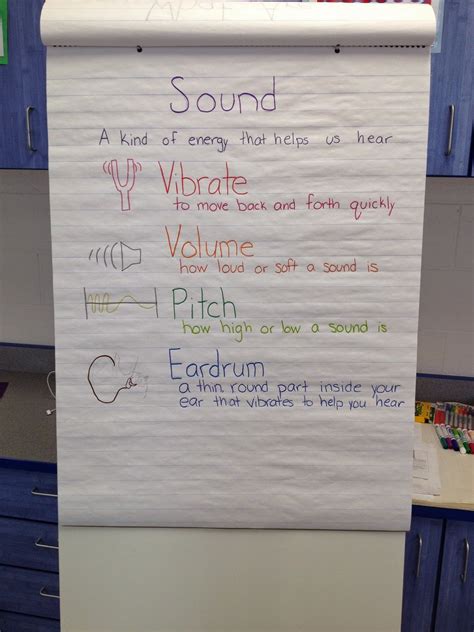 Sound
A kind of energy that helps us hear
Vibrate
to move back and forth quickly
Volume
how loud or soft a sound is
Pitch
how high or low a sound is
Eardrum
a thin round part inside your
ear that vibrates to help you hear